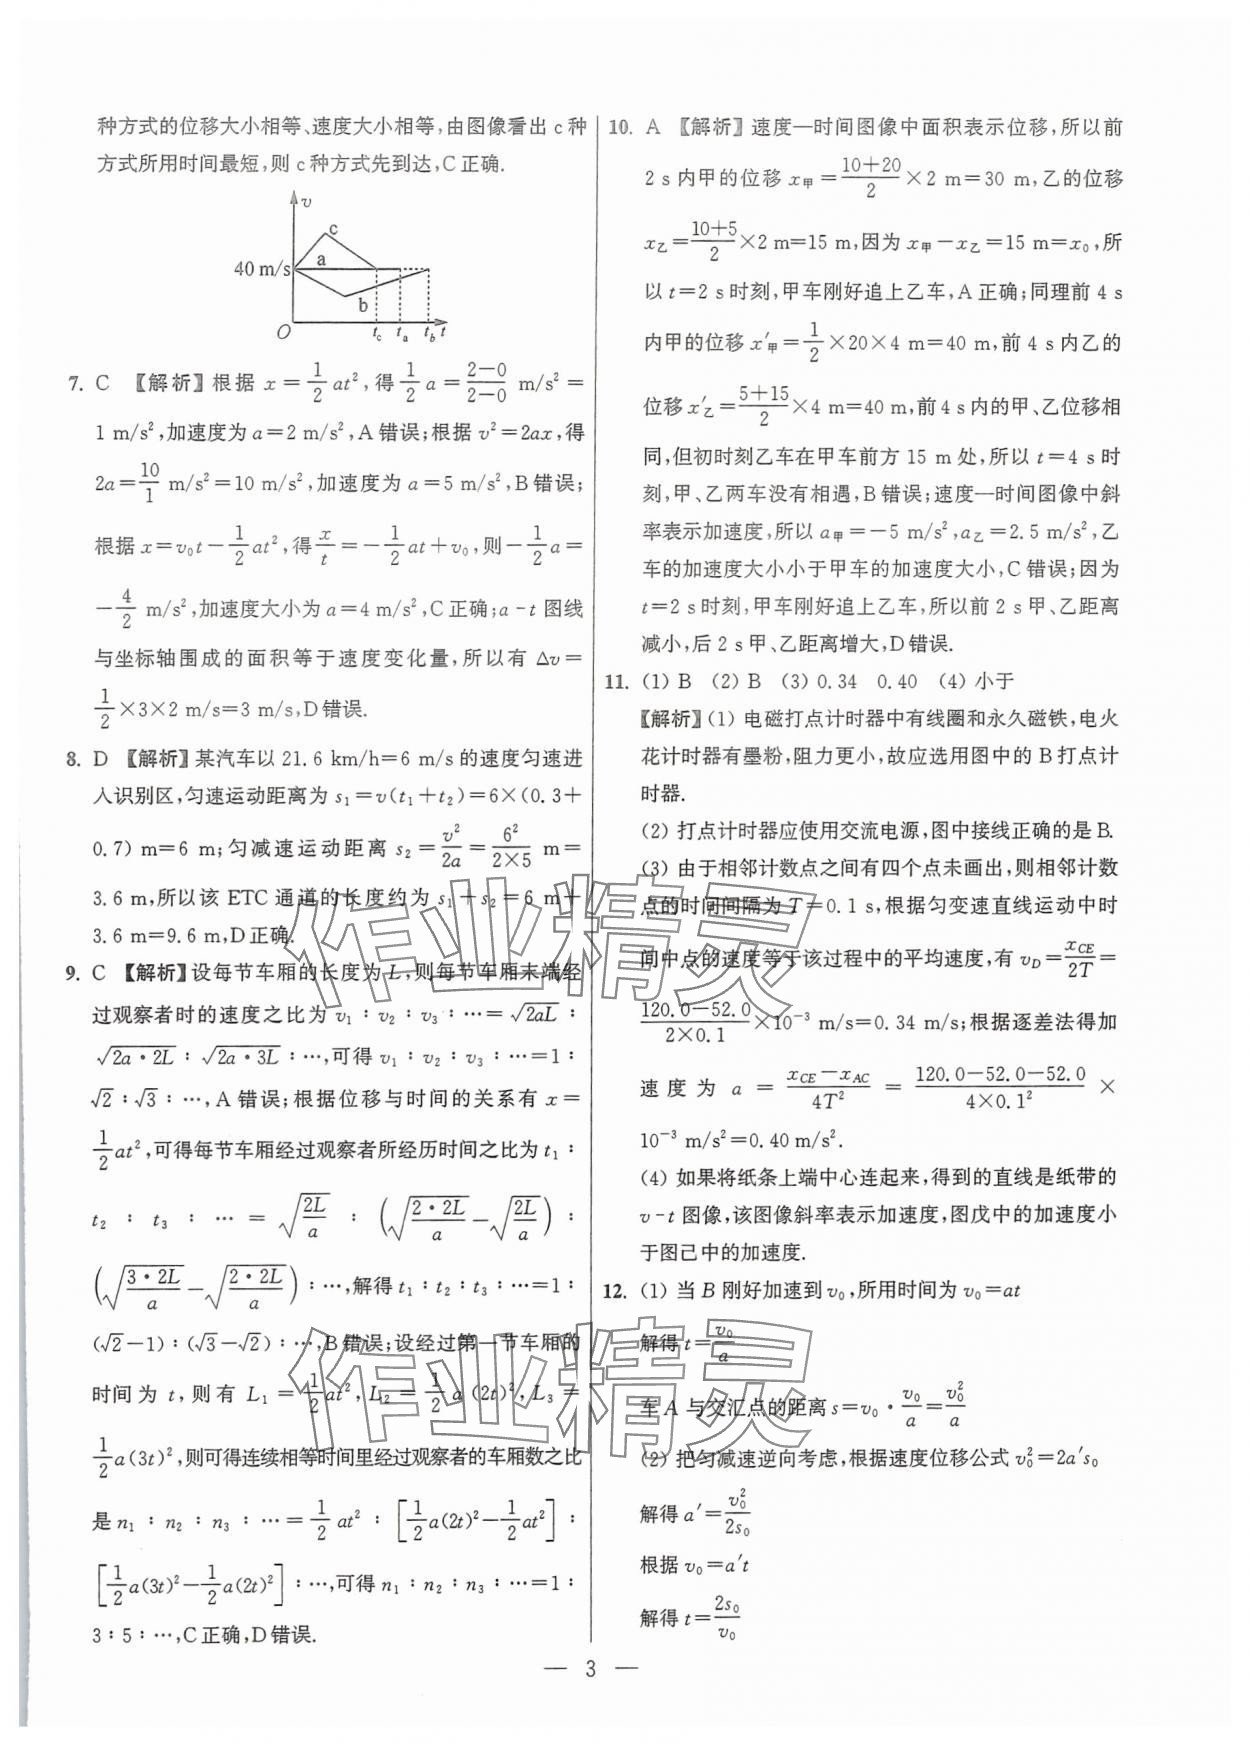 种方式的位移大小相等、速度大小相等,由图像看出 c 种
方式所用时间最短,则 c 种方式先到达,C 正确.
v
c
40 m/s
a
b
O t_c t_a t_b t
7. C 【解析】根据 x=1/2 at²,得 1/2 a=(2-0)/(2-0) m/s²=
1 m/s²,加速度为 a=2 m/s²,A 错误;根据 v²=2ax,得
2a=10/1 m/s²=10 m/s²,加速度为 a=5 m/s²,B 错误;
根据 x=v₀t-1/2 at²,得 x/t=-1/2 at+v₀,则-1/2 a=
-4/2 m/s²,加速度大小为 a=4 m/s²,C 正确;a-t 图线
与坐标轴围成的面积等于速度变化量,所以有 Δv=
1/2×3×2 m/s=3 m/s,D 错误.
8. D 【解析】某汽车以 21.6 km/h=6 m/s 的速度匀速进
入识别区,匀速运动距离为 s₁=v(t₁+t₂)=6×(0.3+
0.7) m=6 m;匀减速运动距离 s₂=v²/2a=6²/(2×5) m=
3.6 m,所以该 ETC 通道的长度约为 s₁+s₂=6 m+
3.6 m=9.6 m,D 正确.
9. C 【解析】设每节车厢的长度为 L,则每节车厢末端经
过观察者时的速度之比为 v₁∶v₂∶v₃∶…=√(2aL)∶
√(2a·2L)∶√(2a·3L)∶…,可得 v₁∶v₂∶v₃∶…=1∶
√2∶√3∶…,A 错误;根据位移与时间的关系有 x=
1/2 at²,可得每节车厢经过观察者所经历时间之比为 t₁∶
t₂∶t₃∶…=√(2L/a)∶(√(2·2L/a)-√(2L/a))∶
(√(3·2L/a)-√(2·2L/a))∶…,解得 t₁∶t₂∶t₃∶…=1∶
(√2-1)∶(√3-√2)∶…,B 错误;设经过第一节车厢的
时间为 t,则有 L₁=1/2 at²,L₂=1/2 a(2t)²,L₃=
1/2 a(3t)²,则可得连续相等时间里经过观察者的车厢数之比
是 n₁∶n₂∶n₃∶…=1/2 at²∶[1/2 a(2t)²-1/2 at²]∶
[1/2 a(3t)²-1/2 a(2t)²]∶…,可得 n₁∶n₂∶n₃∶…=1∶
3∶5∶…,C 正确,D 错误.
10. A 【解析】速度—时间图像中面积表示位移,所以前
2 s 内甲的位移 x甲=(10+20)/2×2 m=30 m,乙的位移
x乙=(10+5)/2×2 m=15 m,因为 x甲-x乙=15 m=x₀,所
以 t=2 s 时刻,甲车刚好追上乙车,A 正确;同理前 4 s
内甲的位移 x′甲=1/2×20×4 m=40 m,前 4 s 内乙的
位移 x′乙=(5+15)/2×4 m=40 m,前 4 s 内的甲、乙位移相
同,但初时刻乙车在甲车前方 15 m 处,所以 t=4 s 时
刻,甲、乙两车没有相遇,B 错误;速度—时间图像中斜
率表示加速度,所以 a甲=-5 m/s²,a乙=2.5 m/s²,乙
车的加速度大小小于甲车的加速度大小,C 错误;因为
t=2 s 时刻,甲车刚好追上乙车,所以前 2 s 甲、乙距离
减小,后 2 s 甲、乙距离增大,D 错误.
11. (1) B (2) B (3) 0.34 0.40 (4) 小于
【解析】(1) 电磁打点计时器中有线圈和永久磁铁,电火
花计时器有墨粉,阻力更小,故应选用图中的 B 打点计
时器.
(2) 打点计时器应使用交流电源,图中接线正确的是 B.
(3) 由于相邻计数点之间有四个点未画出,则相邻计数
点的时间间隔为 T=0.1 s,根据匀变速直线运动中时
间中点的速度等于该过程中的平均速度,有 v_D=x_CE/2T=
(120.0-52.0)/(2×0.1)×10⁻³ m/s=0.34 m/s;根据逐差法得加
速度为 a=(x_CE-x_AC)/4T²=(120.0-52.0-52.0)/(4×0.1²)×
10⁻³ m/s²=0.40 m/s².
(4) 如果将纸条上端中心连起来,得到的直线是纸带的
v-t 图像,该图像斜率表示加速度,图戊中的加速度小
于图己中的加速度.
12. (1) 当 B 刚好加速到 v₀,所用时间为 v₀=at
解得 t=v₀/a
车 A 与交汇点的距离 s=v₀·v₀/a=v₀²/a
(2) 把匀减速逆向考虑,根据速度位移公式 v₀²=2a′s₀
解得 a′=v₀²/2s₀
根据 v₀=a′t
解得 t=2s₀/v₀
— 3 —
作业精灵
作业精灵